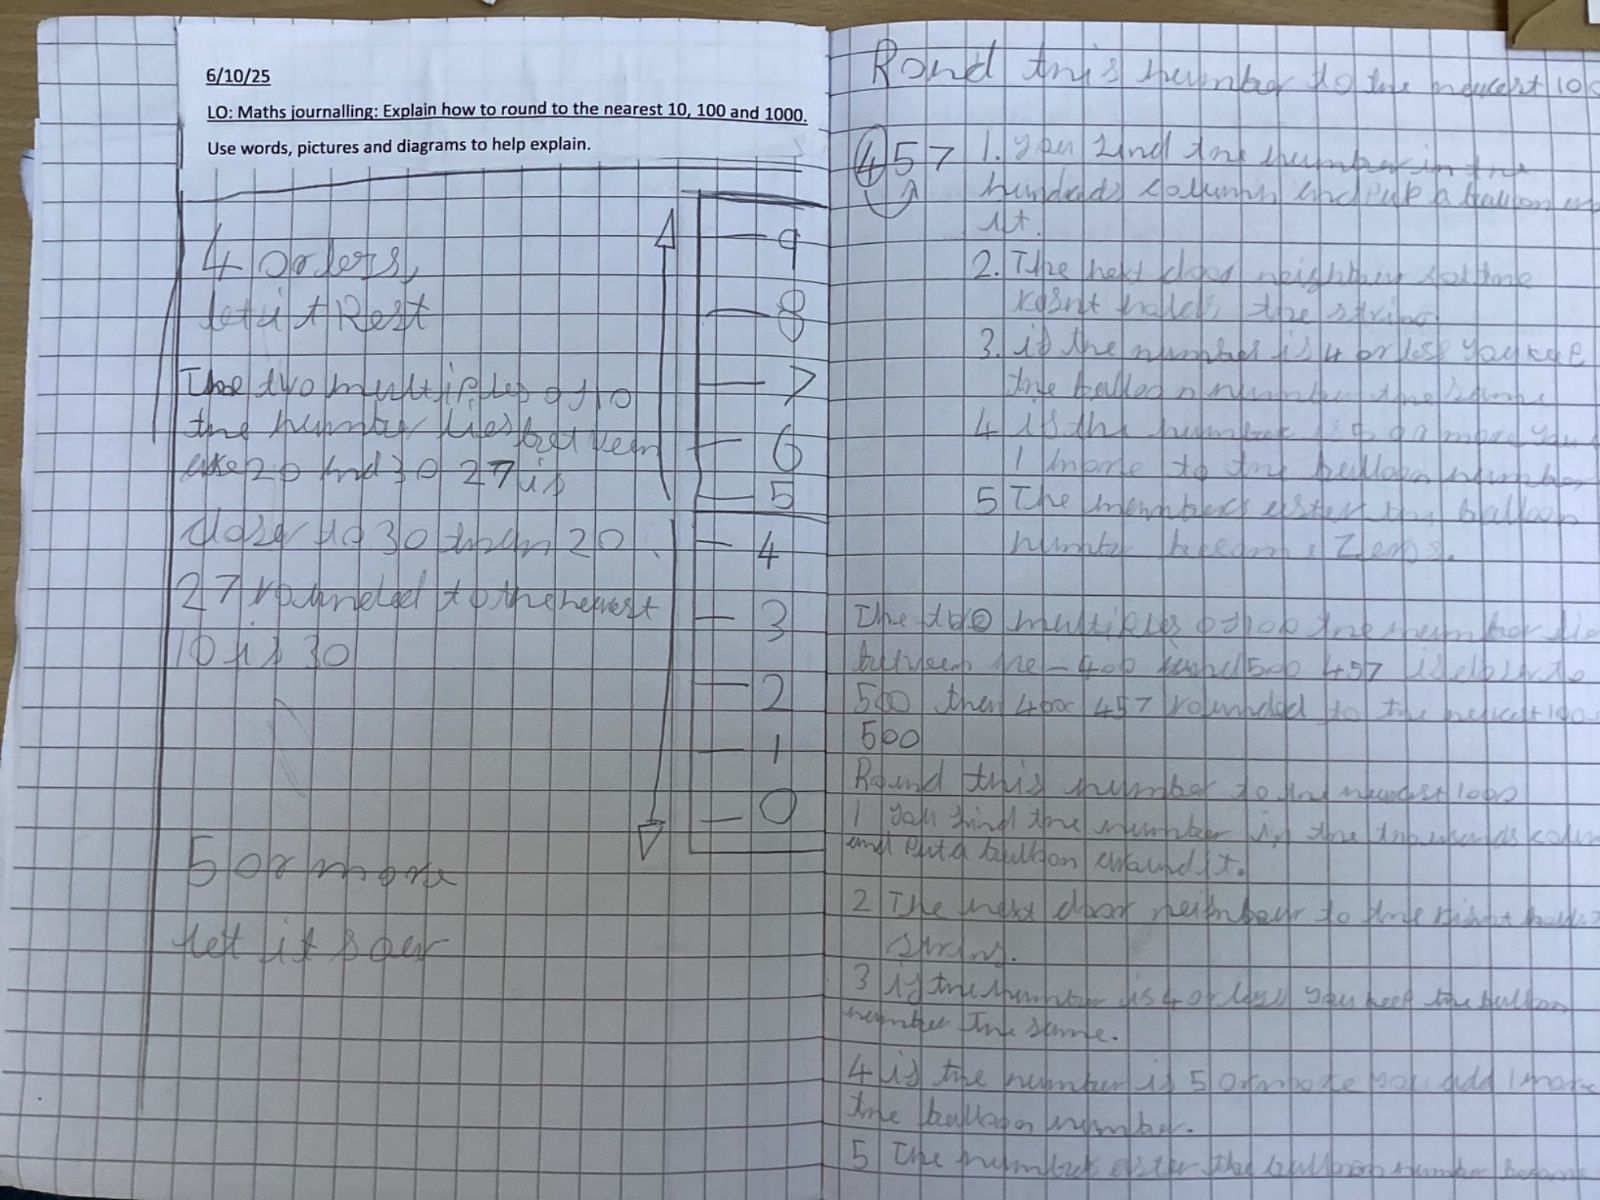 6/10/25
LO: Maths journalling: Explain how to round to the nearest 10, 100 and 1000.
Use words, pictures and diagrams to help explain.
4 or less,
let it Rest
The two multiples of 10
the number lies between
are 20 and 30 27 is
closer to 30 than 20.
27 rounded to the nearest
10 is 30
5 or more
let it soar
9
8
7
6
5
4
3
2
1
0
Rond this number to the nearest 100
457
1. you find the number in the
hundads column and put a balloon
it.
2. The next door neighbour to the
holds the string
3. if the number is 4 or less you keep
the balloon number the same
4 if the number is 5 or more you
1 more to the balloon number
5 The numbers after the balloon
number become Zeros.
The two multiples of 100 the number lie
between are 400 and 500 457 is closer to
500 then 400 457 rounded to the nearest 100
500
Round this number to the nearest 1000
1 you find the number in the thousands
and put a balloon around it.
2 The next door neighbour to the right holds
string.
3 if the number is 4 or less you keep the balloon
number the same.
4 if the number is 5 or more you add 1 more
the balloon number.
5 The numbers after the balloon number become